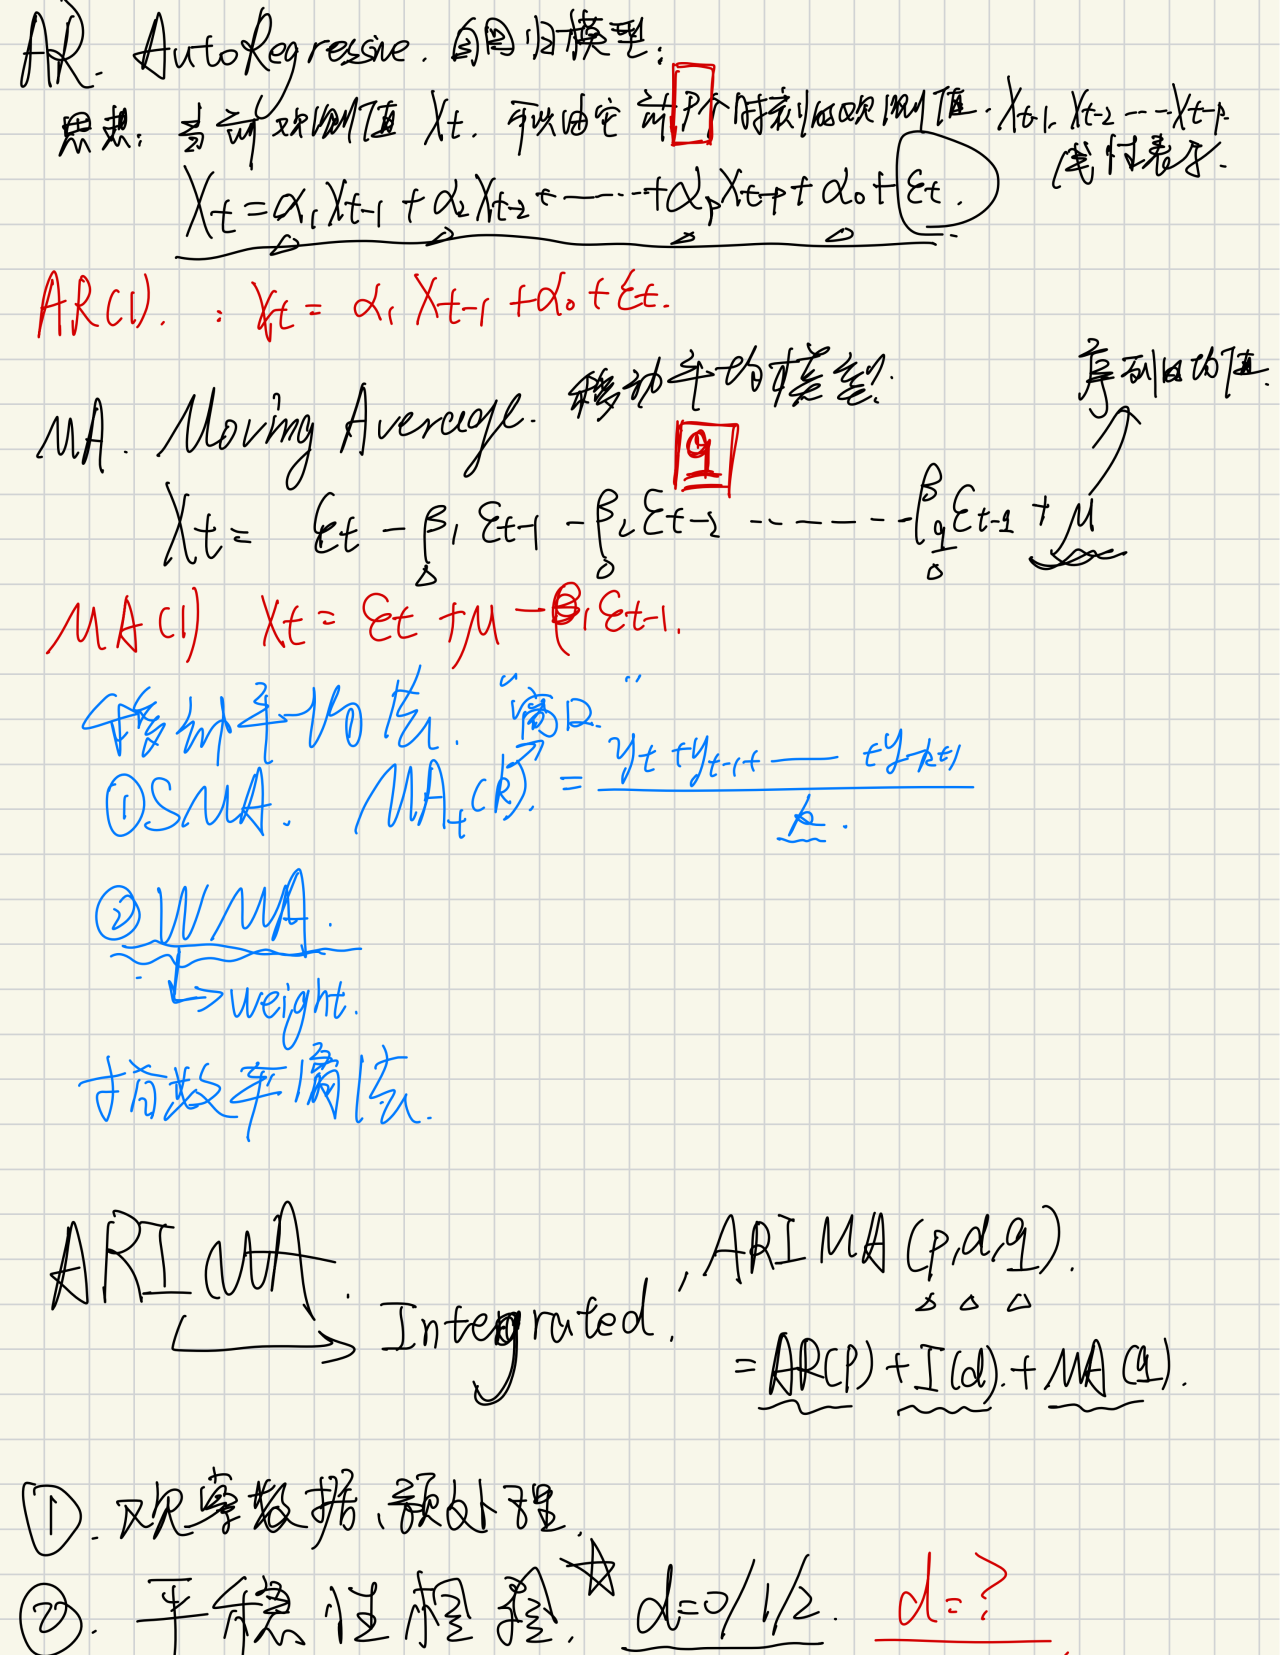 AR. AutoRegressive. 自回归模型.
思想: 当前观测值 Xt. 可以由它前p个时刻的观测值. Xt-1, Xt-2 ---- Xt-p.
线性表示.
Xt = α1 Xt-1 + α2 Xt-2 + ------ + αp Xt-p + α0 + εt.
AR(1). : Xt = α1 Xt-1 + α0 + εt.
序列的均值.
MA. Moving Average. 移动平均模型.
q
Xt = εt - β1 εt-1 - β2 εt-2 ------- - βq εt-q + μ
MA(1) Xt = εt + μ - β1 εt-1.
移动平均法. “窗口.”
①SMA. MAt(k). = yt + yt-1 + —— + yt-k+1 / k.
②WMA.
→ weight.
指数平滑法.
ARIMA. → Integrated, ARIMA(p,d,q).
= AR(p) + I(d). + MA(q).
①. 观察数据、预处理.
②. 平稳性检验. ☆ d=0/1/2. d=?